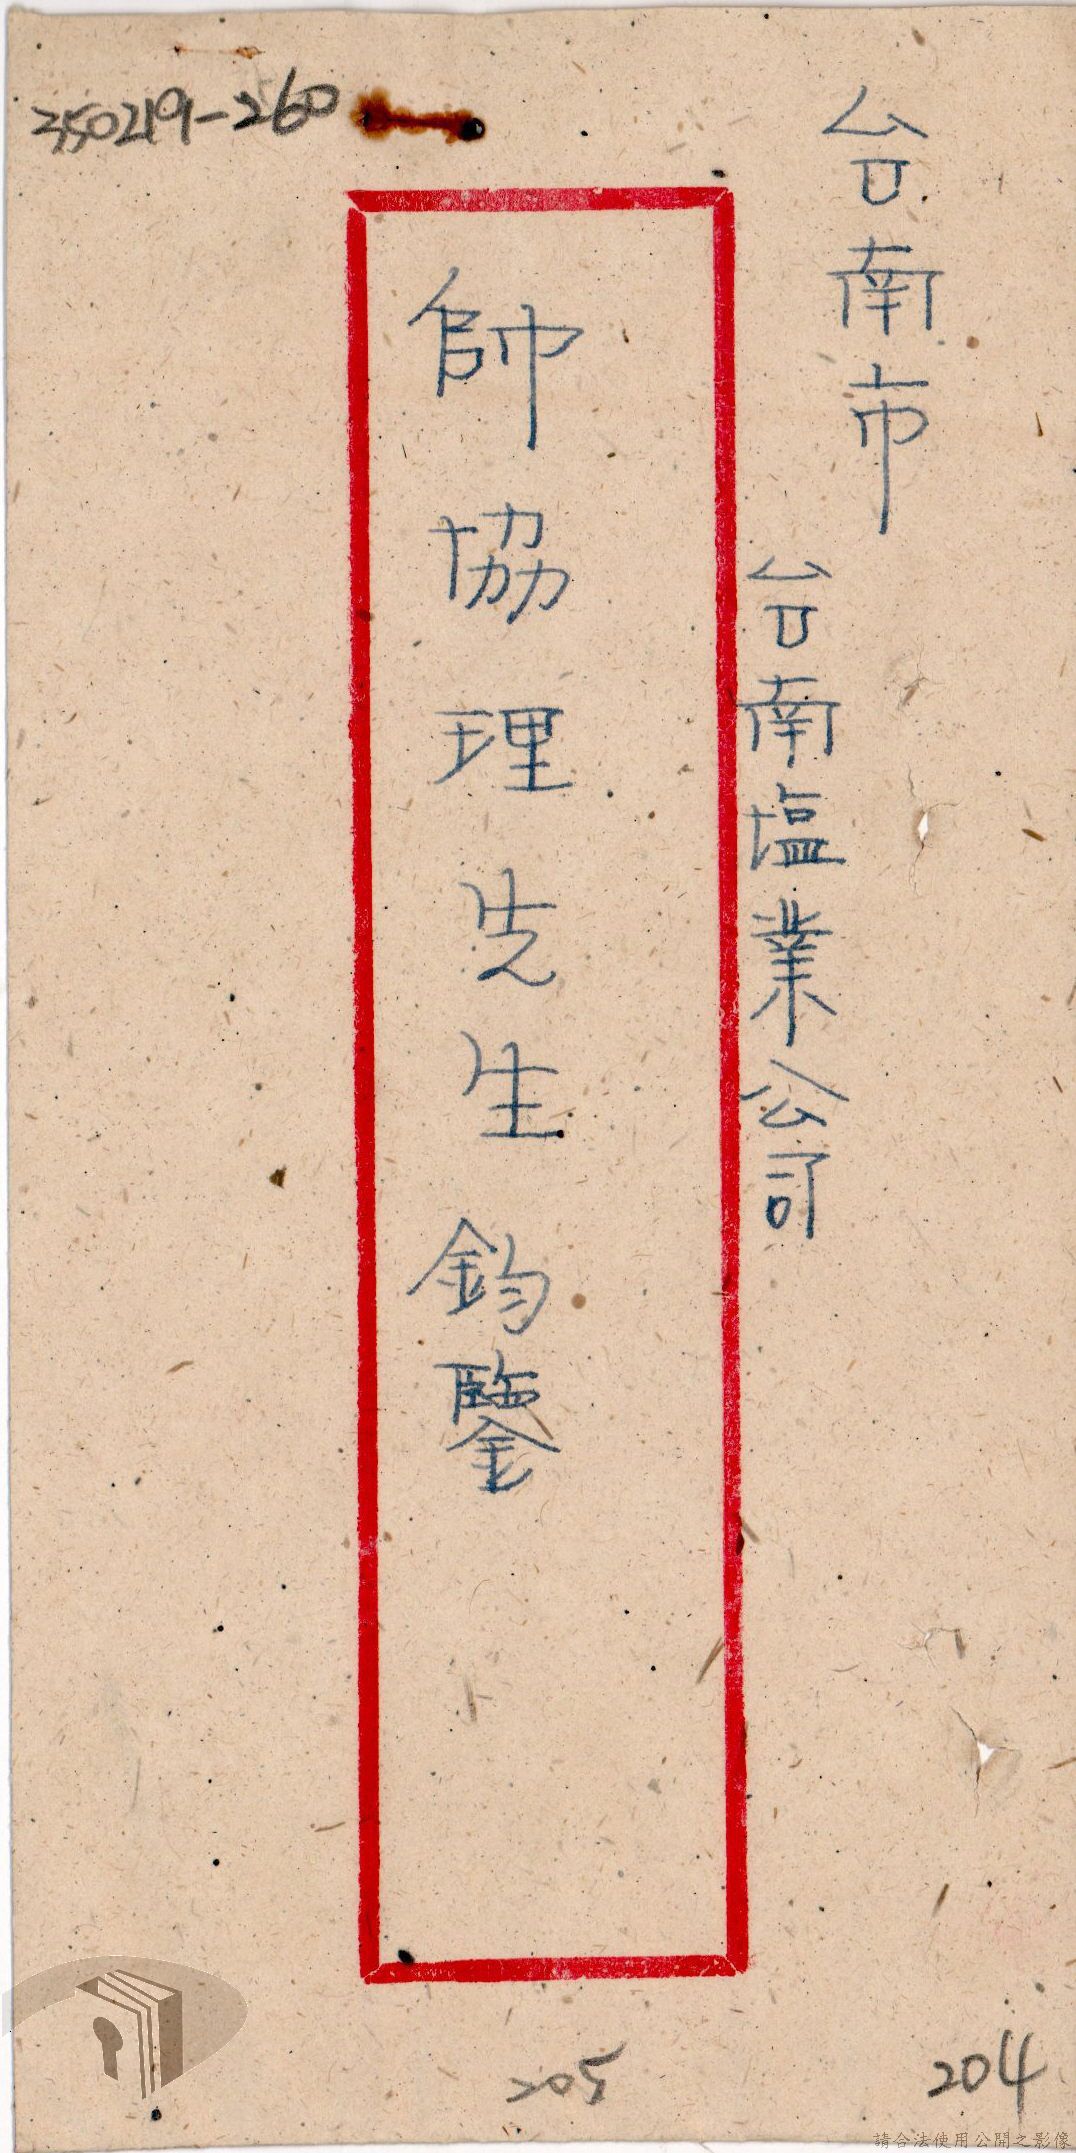 350219-260
台南市
台南塩業公司
帥協理先生 鈞鑒
205
204
請合法使用公開之影像